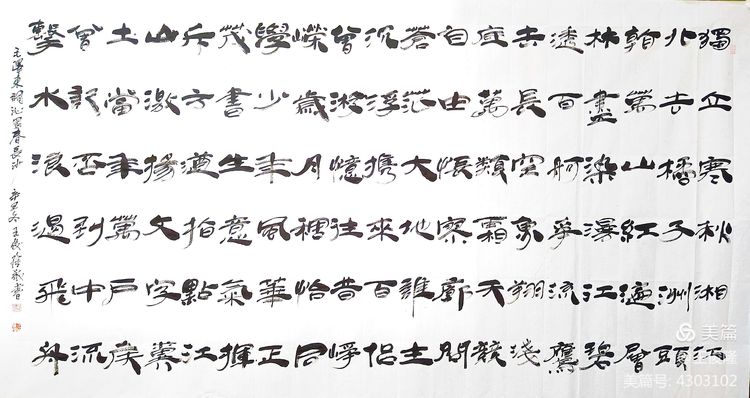 獨立寒秋湘江
北去橘子洲頭
看萬山紅遍層
林盡染漫江碧
透百舸爭流鷹
击長空魚翔淺
底萬類霜天競
自由悵寥廓問
蒼茫大地誰主
沉浮攜來百侶
曾游憶往昔崢
嶸歲月稠恰同
學少年風華正
茂書生意氣揮
斥方遒指點江
山激揚文字糞
土當年萬戶侯
曾記否到中流
擊水浪遏飛舟
毛澤東詞沁園春長沙 辛丑冬 王長隆敬書
美篇
美篇号: 4303102